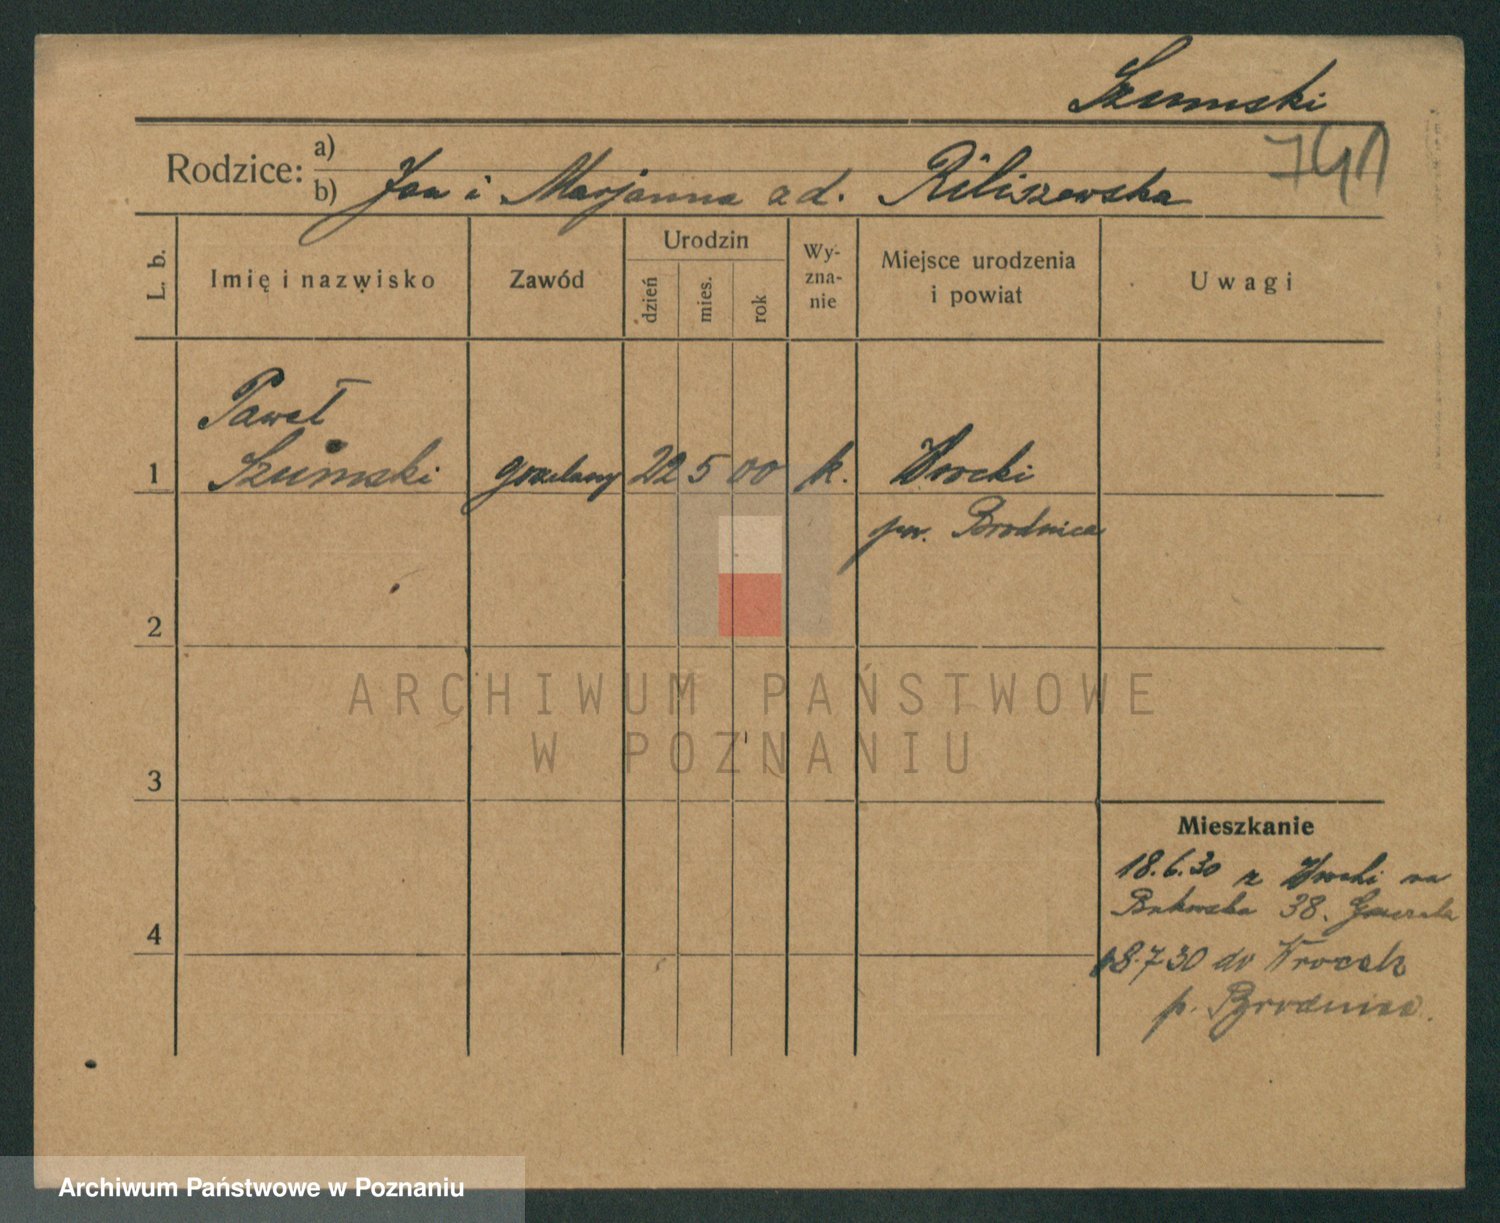 Szumski
741
Rodzice: a)
b) Jan i Marjanna zd. Reliszewska
L. b.
Imię i nazwisko
Zawód
Urodzin
dzień
mies.
rok
Wy-
zna-
nie
Miejsce urodzenia
i powiat
Uwagi
Paweł
1 Szumski gorzelany 22 5 00 k. Wrocki
pow. Brodnica
2
3
4
Mieszkanie
18.6.30 z Wrocki na
Bukowska 38.
18.7.30 do Wrock
p. Brodnica.
ARCHIWUM PAŃSTWOWE
W POZNANIU
Archiwum Państwowe w Poznaniu